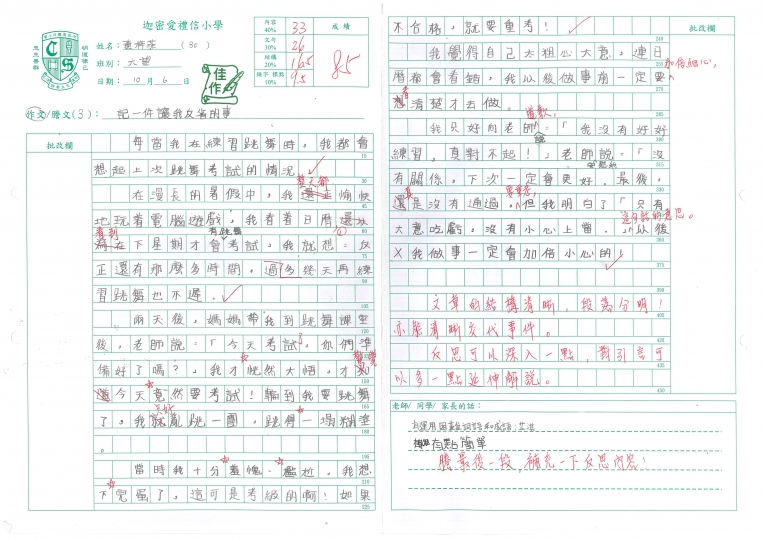 迦密愛禮信小學
姓名:
(30)
班別: 六望
日期: 10 月 6 日
內容 40% 33
文句 30% 26
結構 20% 16.5
錯字 標點 10% 9.5
成績
85
佳作
作文/謄文(3): 記一件讓我反省的事
批改欄
每當我在練習跳舞時,我都會
想起上次跳舞考試的情況。
在漫長的暑假中,我
愉快
整天都
地玩着電腦遊戲,我看着日曆
看到
有跳舞
在下星期才會考試,我就想:反
正還有那麼多時間,過多幾天再練
習跳舞也不遲。
兩天後,媽媽帶我到跳舞課室
後,老師說:「今天考試了,你們準
備好了嗎?」我才恍然大悟,才
驚覺
今天竟然要考試!輪到我要跳舞
了,我
只好
亂跳一團,跳得一塌糊塗
。
當時我十分羞愧、尷尬,我想
下完蛋了,這可是考級的啊!如果
15
30
45
60
75
90
105
120
135
150
165
180
195
210
225
批改欄
不合格,就要重考!
我覺得自己太粗心大意,連日
曆都會看錯,我以後做事前一定要
加倍細心,
想清楚才去做。
我只好向老師
道歉,
說:「我沒有好好
練習,真對不起!」老師說:「沒
有關係,下次一定會更好。最後,
還是沒有通過,但我明白了「只有
大意吃虧,沒有小心上當」
這句話的意思。
以後
我做事一定會加倍小心的!
文章的結構清晰,段落分明!
亦能清晰交代事件。
反思可以深入一點,對引言可
以多一點延伸解說。
240
255
270
285
300
315
330
345
360
375
390
405
420
435
450
老師/ 同學/ 家長的話:
有點簡單
謄最後一段,補充一下反思內容!